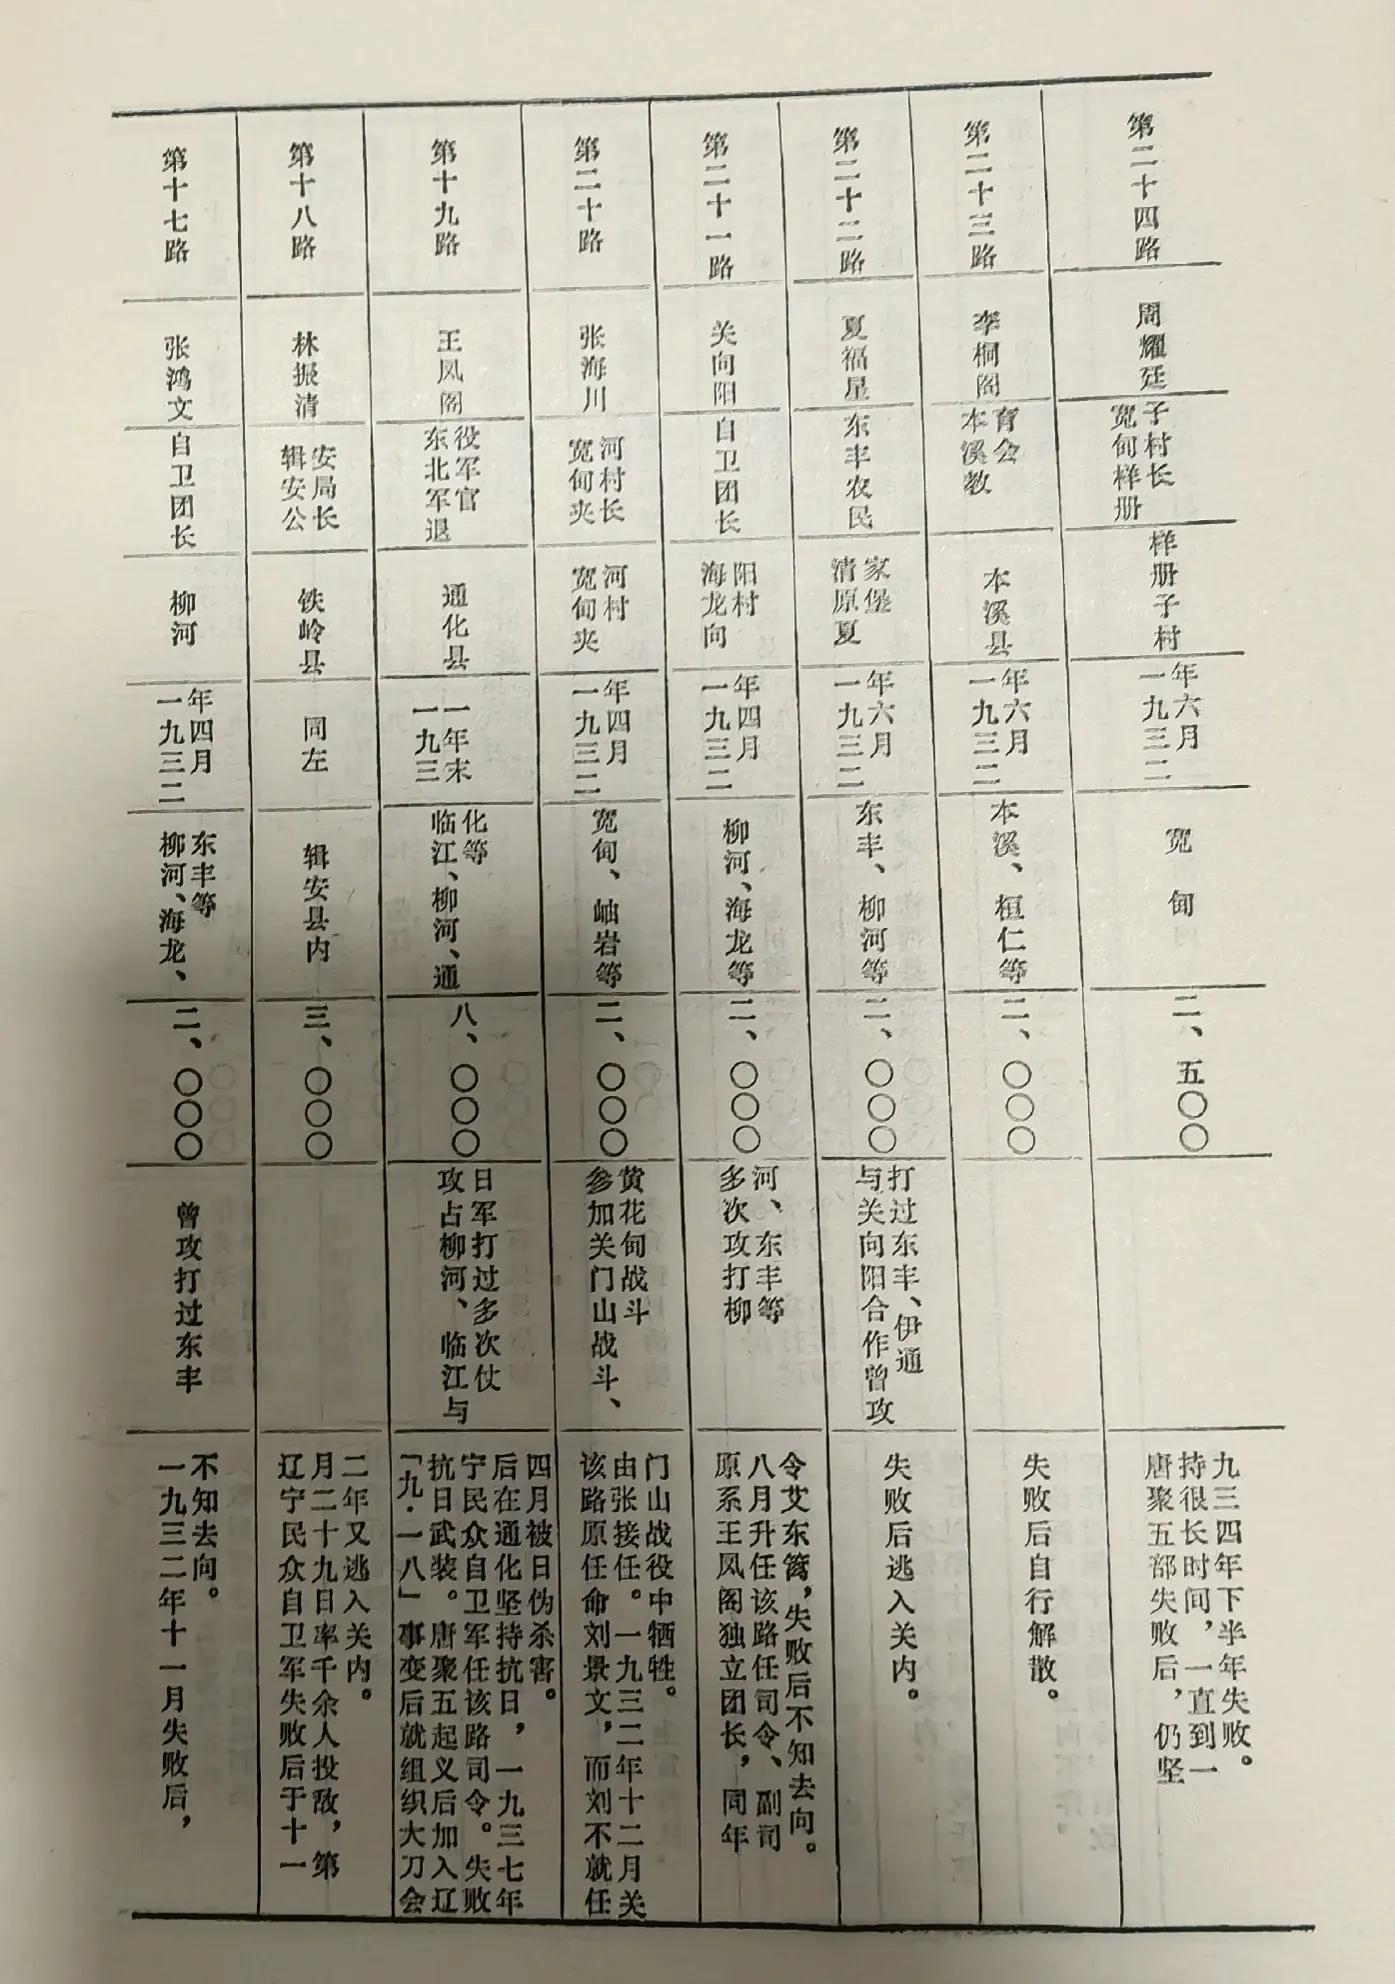 第十七路
张鸿文
自卫团长
柳河
一九三二
年四月
柳河、海龙、
东丰等
二、〇〇〇
曾攻打过东丰
一九三二年十一月失败后，
不知去向。
第十八路
林振清
辑安公
安局长
铁岭县
同左
辑安县内
三、〇〇〇
辽宁民众自卫军失败后于十一
月二十九日率千余人投敌，第
二年又逃入关内。
第十九路
王凤阁
东北军退
役军官
通化县
一九三
一年末
临江、柳河、通
化等
八、〇〇〇
攻占柳河、临江与
日军打过多次仗
「九·一八」事变后就组织大刀会
抗日武装。唐聚五起义后加入辽
宁民众自卫军任该路司令。失败
后在通化坚持抗日，一九三七年
四月被日伪杀害。
第二十路
张海川
宽甸夹
河村长
宽甸夹
河村
一九三二
年四月
宽甸、岫岩等
二、〇〇〇
参加关门山战斗、
黄花甸战斗
该路原任命刘景文，而刘不就任
由张接任。一九三二年十二月关
门山战役中牺牲。
第二十一路
关向阳
自卫团长
海龙向
阳村
一九三二
年四月
柳河、海龙等
二、〇〇〇
多次攻打柳
河、东丰等
原系王凤阁独立团长，同年
八月升任该路任司令、副司
令艾东篱，失败后不知去向。
第二十二路
夏福星
东丰农民
清原夏
家堡
一九三二
年六月
东丰、柳河等
二、〇〇〇
与关向阳合作曾攻
打过东丰、伊通
失败后逃入关内。
第二十三路
李桐阁
本溪教
育会
本溪县
一九三二
年六月
本溪、桓仁等
二、〇〇〇
失败后自行解散。
第二十四路
周耀廷
宽甸样册
子村长
样册子村
一九三二
年六月
宽甸
二、五〇〇
唐聚五部失败后，仍坚
持很长时间，一直到一
九三四年下半年失败。